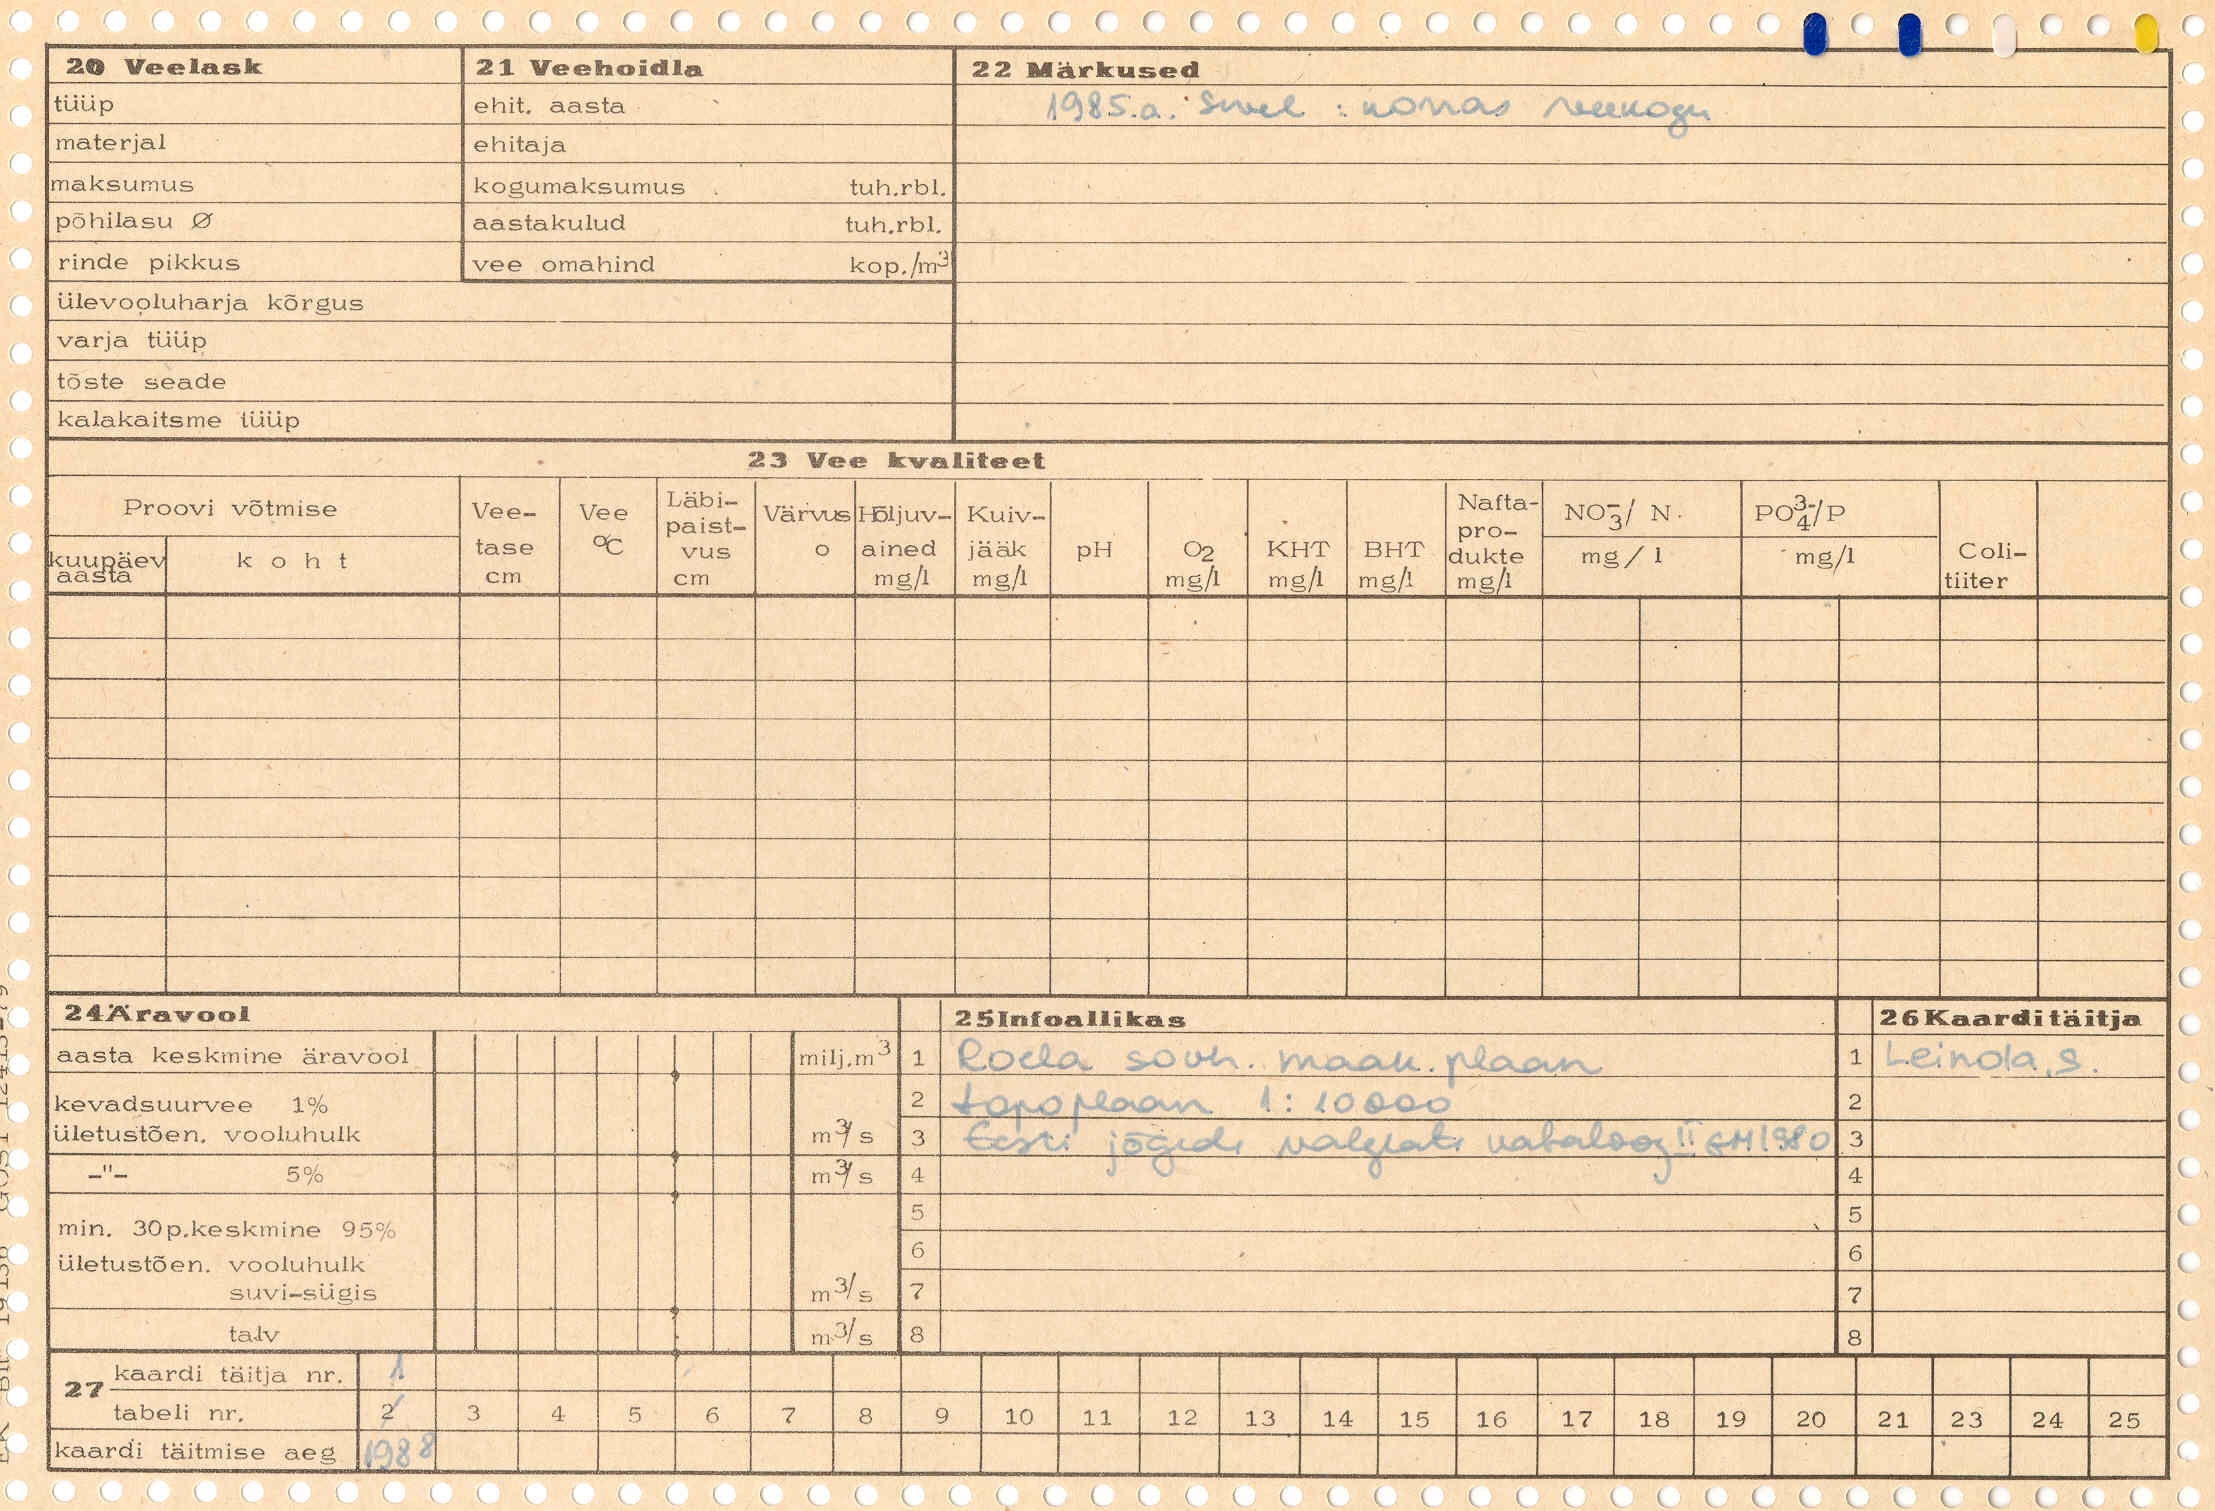 20 Veelask
tüüp
materjal
maksumus
põhilasu Ø
rinde pikkus
ülevooluharja kõrgus
varja tüüp
tõste seade
kalakaitsme tüüp
21 Veehoidla
ehit. aasta
ehitaja
kogumaksumus tuh.rbl.
aastakulud tuh.rbl.
vee omahind kop./m³
22 Märkused
1985.a. suvel : korras veekogu
23 Vee kvaliteet
Proovi võtmise
kuupäev
aasta
koht
Vee-
tase
cm
Vee
°C
Läbi-
paist-
vus
cm
Värvus
o
Hõljuv-
ained
mg/l
Kuiv-
jääk
mg/l
pH
O₂
mg/l
KHT
mg/l
BHT
mg/l
Nafta-
pro-
dukte
mg/l
NO₃⁻/ N
mg/l
PO₄³⁻/P
mg/l
Coli-
tiiter
24 Äravool
aasta keskmine äravool milj.m³
kevadsuurvee 1%
ületustõen. vooluhulk m³/s
-"- 5% m³/s
min. 30p.keskmine 95%
ületustõen. vooluhulk
suvi-sügis m³/s
talv m³/s
25 Infoallikas
1 Roela sovh. maak. plaan
2 topoplaan 1:10000
3 Eesti jõgede valglate kataloog II 1980
4
5
6
7
8
26 Kaardi täitja
1 Leinola, S.
2
3
4
5
6
7
8
27
kaardi täitja nr. 1
tabeli nr. 2 3 4 5 6 7 8 9 10 11 12 13 14 15 16 17 18 19 20 21 23 24 25
kaardi täitmise aeg 1988